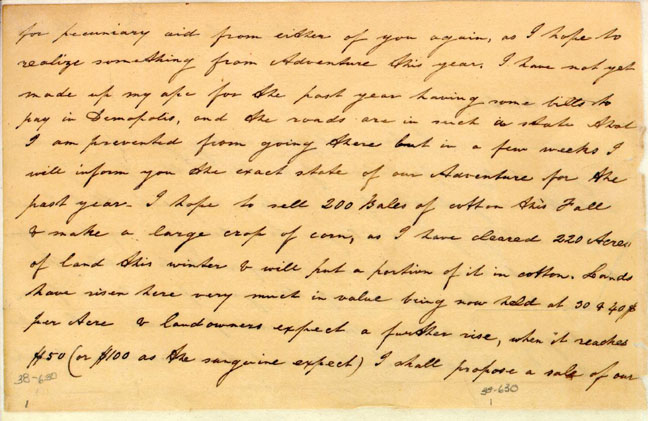 for pecuniary aid from either of you again, as I hope to
realize something from Adventure this year. I have not yet
made up my a/c for the past year having some bills to
pay in Demopolis, and the roads are in such a state that
I am prevented from going there but in a few weeks I
will inform you the exact state of our Adventure for the
past year - I hope to sell 200 Bales of cotton this Fall
& make a large crop of corn, as I have cleared 220 Acres
of land this winter & will put a portion of it in cotton. Lands
have risen here very much in value being now held at 30 & 40$
per Acre & landowners expect a further rise, when it reaches
$50 (or $100 as the sanguine expect) I shall propose a sale of our
38-630
38-630
1
1